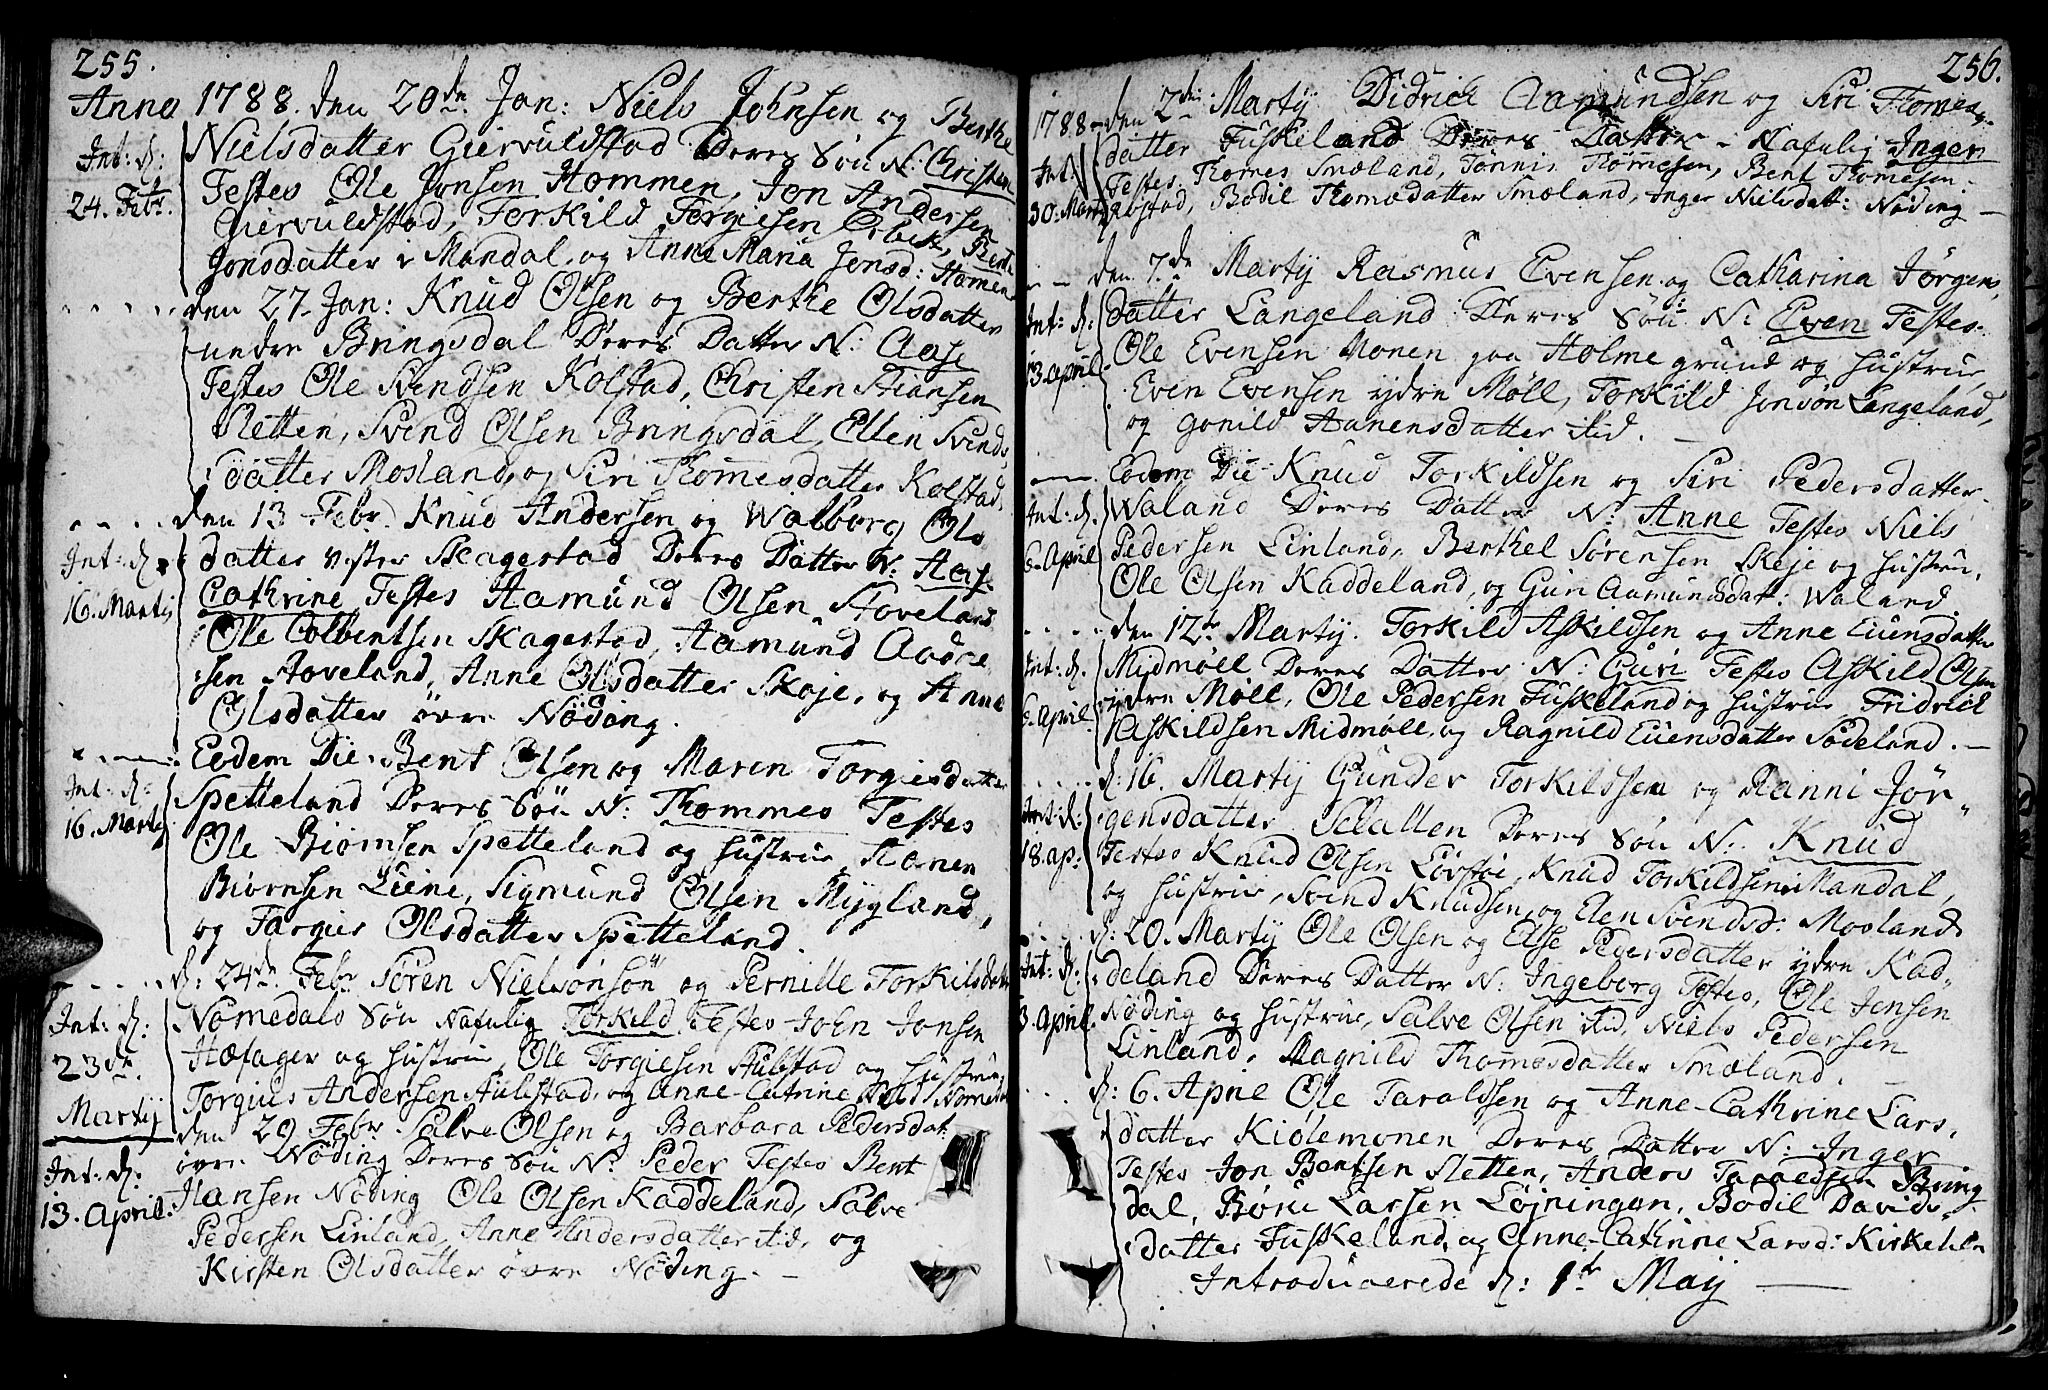 255.
Anno 1788. den 20de Jan: Niels Johnsen og Berthe
Nielsdatter Giervuldstad Deres Søn N: Christen
Int: d:
24. Febr.
Testes Ole Jonsen Hommen, Jon Andersen
Giervuldstad, Torkild Torgiesen Ribek, Berte
Jonsdatter i Mandal, og Anne Maria Jonsd: Homene
den 27 Jan: Knud Olsen og Berthe Olsdatter
nedre Bringsdal Deres Datter N: Aase
Testes Ole Svendsen Kolstad, Christen Stiansen
Sletten, Svend Olsen Bringsdal, Ellen Svends
datter Mosland, og Siri Thomesdatter Kolstad.
den 13 Febr. Knud Andersen og Walborg Ols
Int: d:
16. Martij
datter vester Skagestad Deres Datter N: Aase
Cathrine Testes Aamund Olsen Stoveland
Ole Colbentsen Skagestad, Aamund Aadne
sen Stoveland, Anne Olsdatter Skeje, og Anne
Olsdatter övre Nöding.
Eodem Die Bent Olsen og Maren Torgiesdatter
Int: d:
16. Martij
Spetteland Deres Søn N: Thommes Testes
Ole Biørnsen Spetteland og Hustrue, Hanen
Biørnsen Liene, Sigmund Olsen Mygland,
og Targier Olsdatter Spetteland.
d: 24de Febr Sören Nielsönsön og Pernille Torkilsdatter
Int: d:
23de
Martij
Nömedals Søn Nafnlig Torkild Testes John Jonsen
Hæfager og Hustrue, Ole Torgiesen Stulstad og Hustrue,
Torgius Andersen Stulestad, og Anne-Catrine
den 29 Febr Salve Olsen og Barbara Pedersdat
Int: d:
13. April.
övre Nöding Deres Søn N: Peder Testes Bent
Hansen Nöding Ole Olsen Kaddeland, Salve
Pedersen Linland, Anne Andersdatter itid, og
Kirsten Olsdatter övre Nöding.
256.
1788 den 2den Martij Didrich Aamundsen og Siri Thomes
datter Fuskeland Deres Datter Nafnlig Ingen
Int:
30. Martij
Testes Thomes Smæland, Tönnis Thomesen, Bent Thomesen
Röstad, Bodil Thomsdatter Smæland, Inger Nielsdatt: Nöding
den 7de Martij Rasmus Evensen og Catharina Jörgens
Int: d:
13. April
datter Langeland Deres Søn N: Even Testes
Ole Evensen Monen paa Holme grund og Hustrue,
Even Evensen ydre Møll, Torkild Jonsön Langeland,
og Gonild Hanensdatter itid.
Eodem Die Knud Torkildsen og Siri Pedersdatter
Int: d:
6. April
Waland Deres Datter N: Anne Testes Niels
Pedersen Linland, Berthel Sörensen Skeje og Hustru,
Ole Olsen Kaddeland, og Guri Aamundsdatt: Waland.
den 12te Martij. Torkild Askildsen og Anne Evensdatter
Int: d:
6. April
Midmøll Deres Datter N: Guri Testes Askild Olsen
ydre Møll, Ole Pedersen Fuskeland og Hustrue Fridrick
Askildsen Midmöll, og Ragnild Evensdatter Södeland.
d: 16. Martij Gunder Torkildssen og Ranni Jör
Int: d:
18. ap:
gensdatter Sclatten Deres Søn N: Knud
Testes Knud Olsen Lövstöi, Knud Torkildsen i Mandal,
og Hustrue, Svend Knudsen, og Elen Svendsd: Mosland
d: 20. Martij Ole Olsen og Else Pedersdatter ydre Kad
Int: d:
3. April.
deland Deres Datter N: Ingeborg Testes, Ole Jensen
Nöding og Hustrue, Salve Olsen itid, Niels Pedersen
Linland, Magnild Thomesdatter Smæland.
d: 6. April Ole Taraldsen og Anne-Cathrine Lars
datter Kiölemonen Deres Datter N: Inger
Testes Jon Bentsen Sletten, Anders Taraldsen Bring
dal, Böre Larsen Löjningen, Bodil Davids
datter Fuskeland, og Anne-Cathrine Larsd:
Introducerede d: 1te May